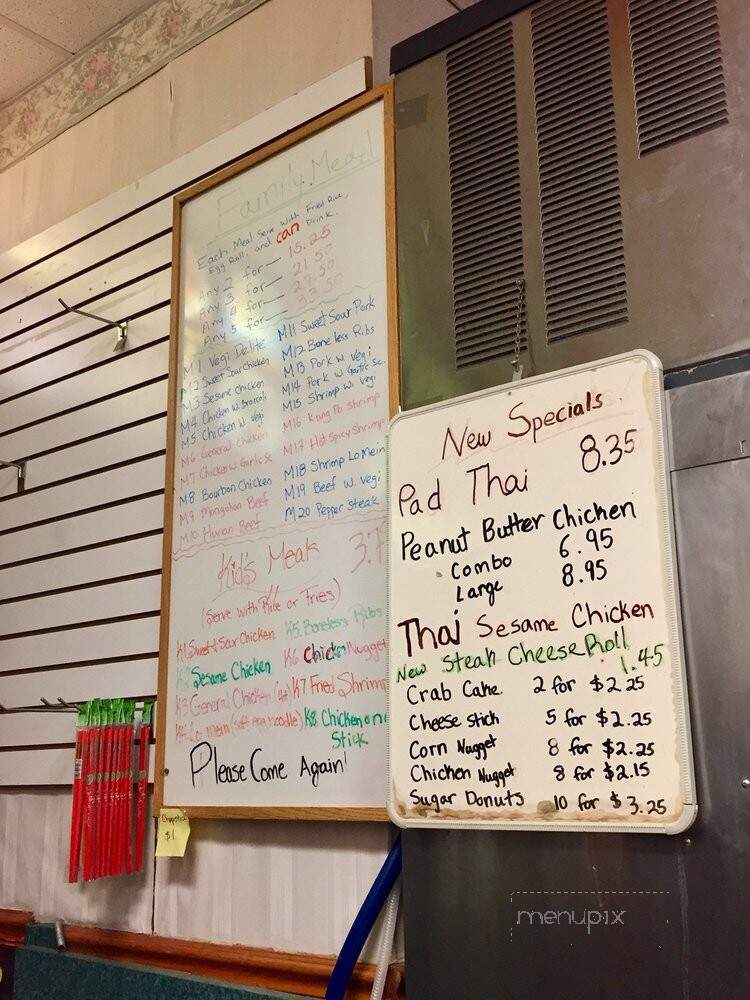 Family Meal
Each Meal Serve With Fried Rice,
Egg Roll, and can Drink.
Any 2 for — 15.25
Any 3 for — 21.50
Any 4 for —
Any 5 for —
M1 Vegi Delite
M2 Sweet Sour Chicken
M3 Sesame Chicken
M4 Chicken w. Broccoli
M5 Chicken W. Vegi
M6 General Chicken
M7 Chicken w Garlic Sc
M8 Bourbon Chicken
M9 Mongolian Beef
M10 Hunan Beef
M11 Sweet Sour Pork
M12 Boneless Ribs
M13 Pork w. Vegi
M14 Pork w Garlic Sc.
M15 Shrimp w. Vegi
M16 Kung Po Shrimp
M17 Hot Spicy Shrimp
M18 Shrimp Lo Mein
M19 Beef w. Vegi
M20 Pepper Steak
Kid's Meals
(Serve with Rice or Fries)
K1 Sweet & Sour Chicken
K2 Sesame Chicken
K3 General Chicken
K4 Lo mein (soft egg noodle)
K5 Boneless Ribs
K6 Chicken Nugget
K7 Fried Shrimp
K8 Chicken on a
Stick
Please Come Again!
Chopstick
$1
New Specials
Pad Thai 8.35
Peanut Butter Chicken
Combo 6.95
Large 8.95
Thai Sesame Chicken
New Steak Cheese Roll
1.45
Crab Cake 2 for $2.25
Cheese stick 5 for $2.25
Corn Nugget 8 for $2.25
Chicken Nugget 8 for $2.15
Sugar Donuts 10 for $3.25
menupix